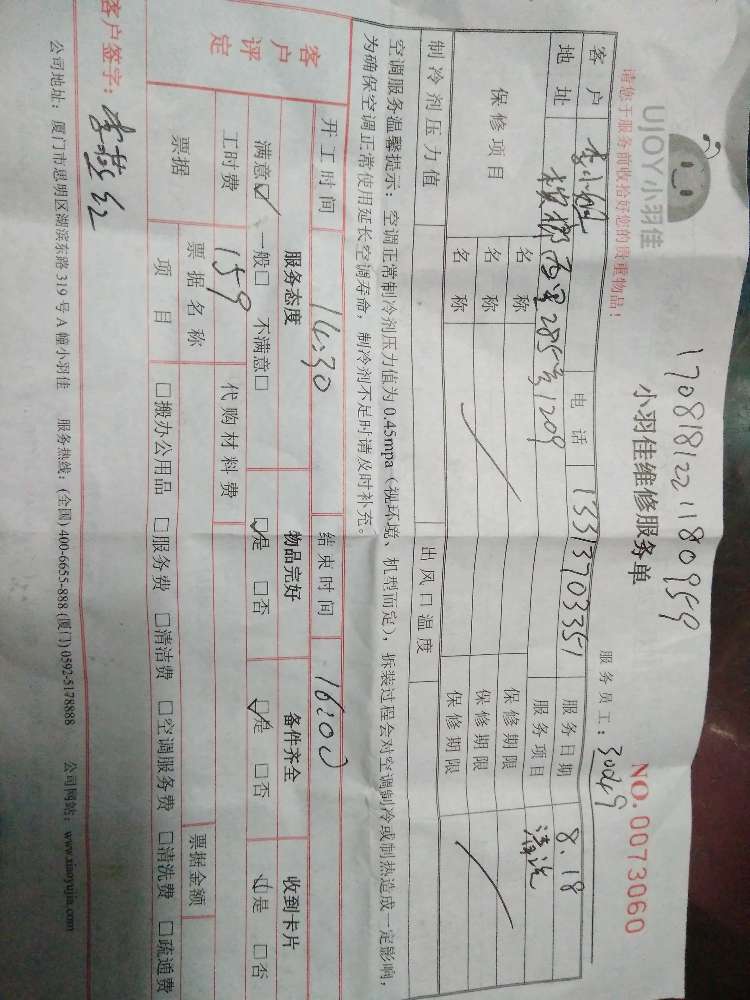 UJOY小羽佳
1708181221180959
请您于服务前收拾好您的贵重物品!
小羽佳维修服务单
NO. 0073060
服务员工: 30049
客户 李小姐 电话 13313703351 服务日期 8.18
地址 槟榔西里285号1209 服务项目 清洗
保修项目 名称 保修期限
名称 保修期限
名称 保修期限
制冷剂压力值 出风口温度
空调服务温馨提示: 空调正常制冷剂压力值为 0.45mpa (视环境、机型而定), 拆装过程会对空调制冷或制热造成一定影响,
为确保空调正常使用延长空调寿命, 制冷剂不足时请及时补充。
开工时间 14:30 结束时间 16:00
客户评定 服务态度 物品完好 备件齐全 收到卡片
满意☑ 一般□ 不满意□ ☑是 □否 ☑是 □否 ☑是 □否
工时费 159 代购材料费
票据 票据名称 票据金额
项目 □搬办公用品 □服务费 □清洁费 □空调服务费 □清洗费 □疏通费
客户签字:
公司地址: 厦门市思明区湖滨东路 319 号 A 幢小羽佳 服务热线: (全国) 400-6655-888 (厦门) 0592-5178888 公司网站: www.xiaoyujia.com